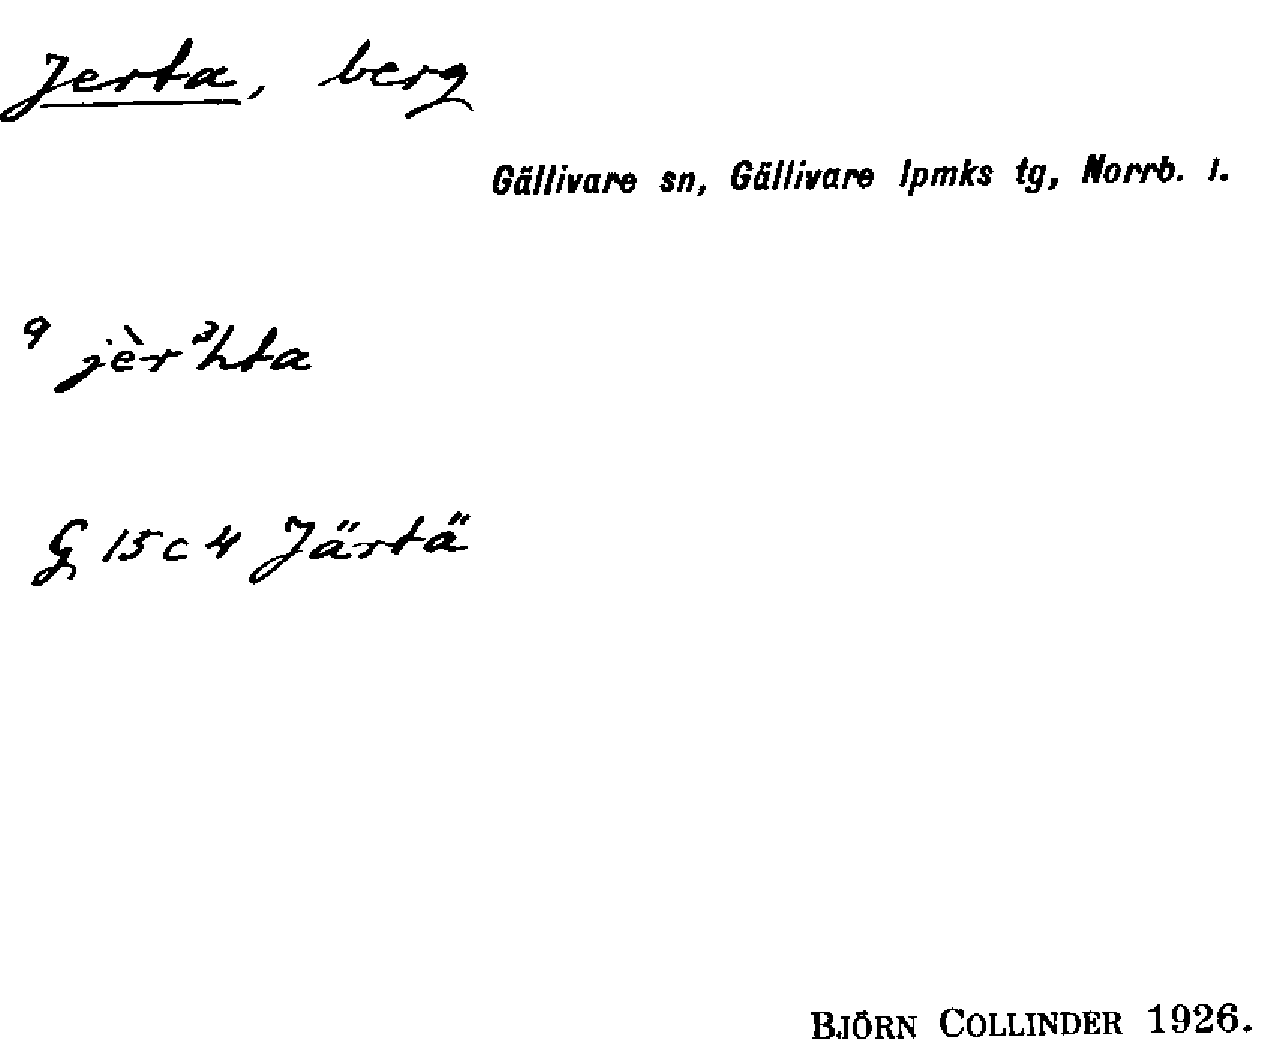 Jerta, berg
Gällivare sn, Gällivare lpmks tg, Norrb. l.
q jèrᵊhta
G 15 c 4 Järtä
BJÖRN COLLINDER 1926.